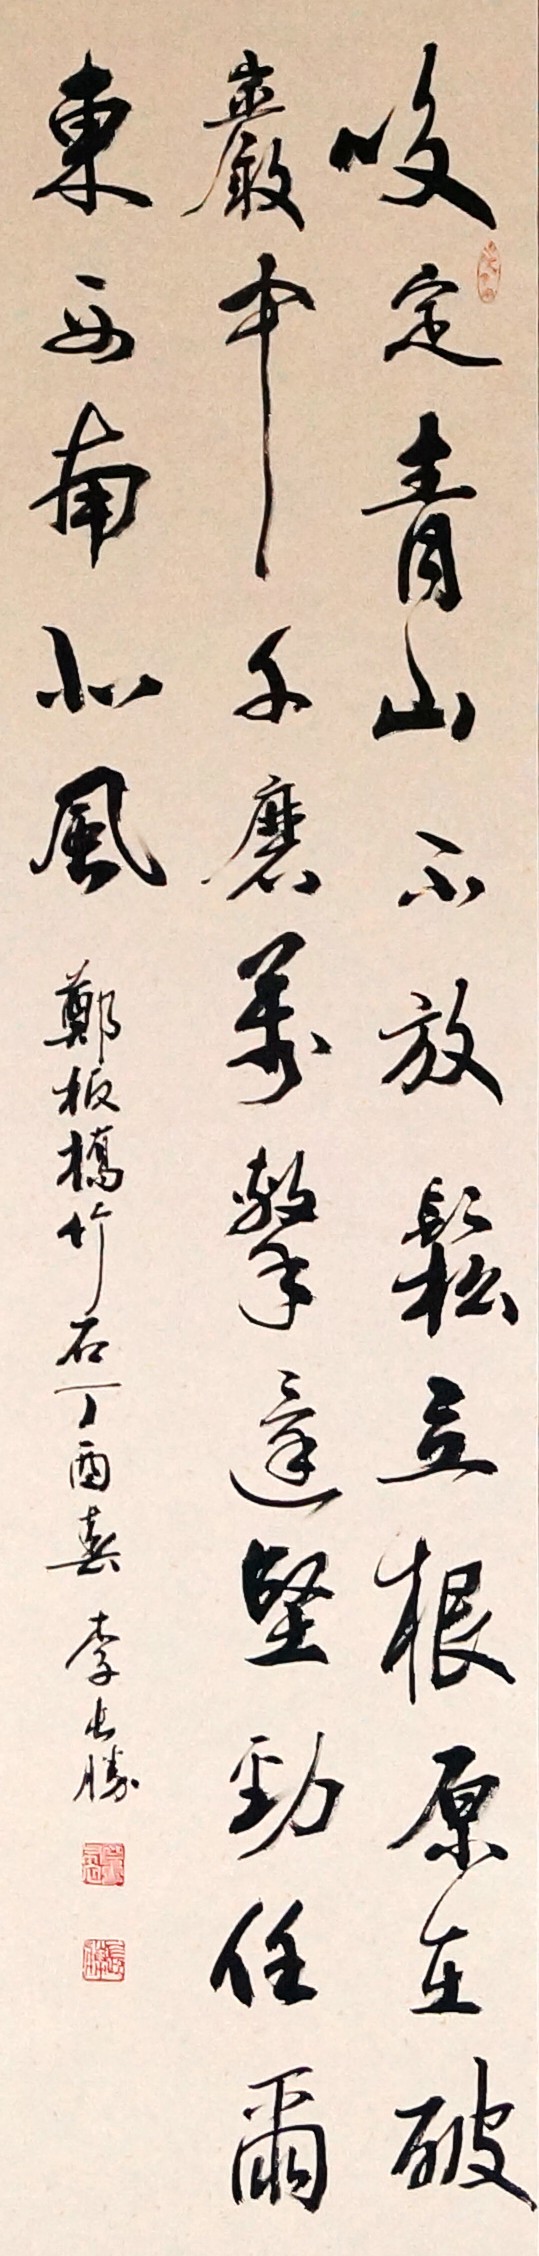 咬定青山不放鬆立根原在破
巖中千磨萬擊還堅勁任爾
東西南北風
鄭板橋竹石丁酉春李長勝